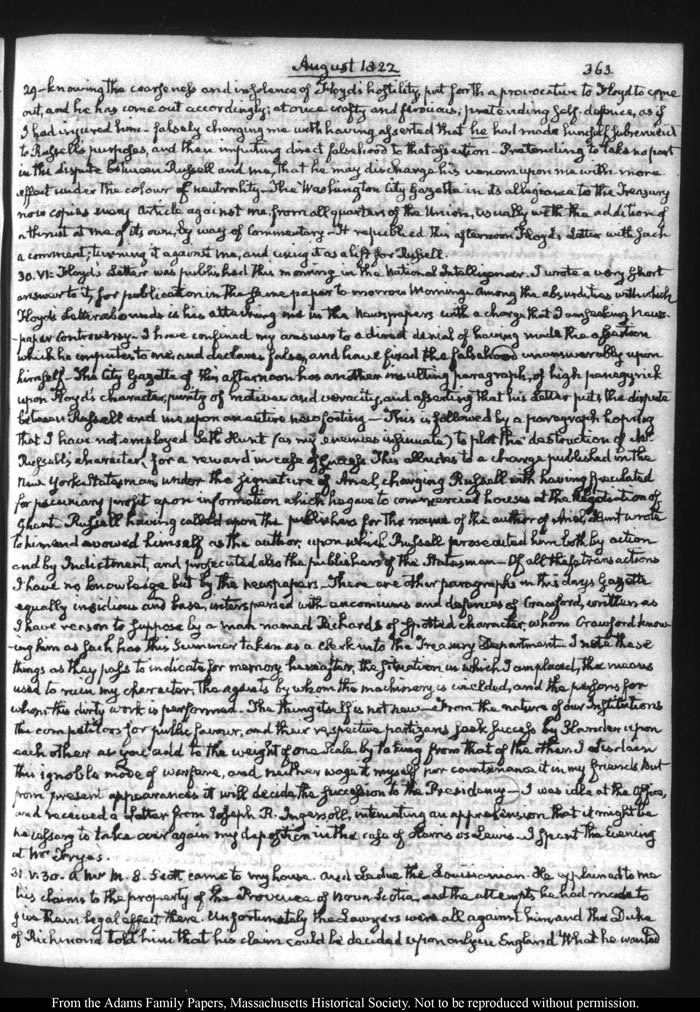 August 1822
363.
29- knowing the coarseness and insolence of Floyd's hostility, put forth a provocative to Floyd to come
out, and he has come out accordingly; at once crafty and ferocious; pretending self-defence, as if
I had injured him - falsely charging me with having asserted that he had made himself subservient
to Russell's purposes, and then imputing direct falsehood to that assertion - Pretending to take no part
in the dispute between Russell and me, that he may discharge his venom upon me with more
effect under the colour of neutrality - The Washington City Gazette in its allegiance to the Treasury
now copies every Article against me, from all quarters of the Union, usually with the addition of
a thrust at me of its own, by way of Commentary - It republished this afternoon Floyd's Letter with such
a comment; turning it against me, and using it as a lift for Russell.
30. VI: Floyd's Letter was published this morning in the National Intelligencer. I wrote a very short
answer to it, for publication in the same paper to morrow Morning. Among the absurdities with which
Floyd's Letter abounds is his attacking me in the Newspapers with a charge that I am seeking News-
-paper Controversy - I have confined my answer to a direct denial of having made the assertion
which he imputes to me, and declares false, and have fixed the falsehood unanswerably upon
himself - The City Gazette of this afternoon has another insulting paragraph, of high panegyrick
upon Floyd's character, purity of motives and veracity, and asserting that his Letter puts the dispute
between Russell and me upon an entire new footing - This is followed by a paragraph hoping
that I have not employed Seth Hunt (as my enemies insinuate) to plot the destruction of Mr
Russell's character, for a reward in case of success. This alludes to a charge published in the
New York Statesman, under the signature of Ariel, charging Russell with having speculated
for pecuniary profit upon information which he gave to commercial houses at the Negotiation of
Ghent. Russell having called upon the publishers for the name of the author of Ariel, Hunt wrote
to him and avowed himself as the author, upon which Russell prosecuted him both by action
and by Indictment, and prosecuted also the publishers of the Statesman - Of all these transactions
I have no knowledge but by the newspapers. There are other paragraphs in this day's Gazette
equally insidious and base, interspersed with encomiums and defences of Crawford, written as
I have reason to suppose by a man named Richards of spotted character, whom Crawford know-
-ing him as such has this Summer taken as a Clerk into the Treasury Department. I note these
things as they pass to indicate for memory hereafter, the situation in which I am placed, the means
used to ruin my character, the agents by whom the machinery is wielded, and the persons for
whom this dirty work is performed. The thing itself is not new - From the nature of our Institutions
the competitors for public favour, and their respective partizans seek success by slander upon
each other as you add to the weight of one Scale, by taking from that of the other. I disdain
this ignoble mode of warfare, and neither wage it myself nor countenance it in my friends But
from present appearances it will decide the succession to the Presidency - I was idle at the Office,
and received a Letter from Joseph R. Ingersoll, intimating an apprehension that it might be
necessary to take over again my deposition in the case of Harris vs Lewis. I spent the evening
at Mr Frye's.
31. V:30. A Mr M. S. Scott came to my house. and Ledue the Louisianian. He explained to me
his claims to the property of the Province of Nova Scotia, and the attempts he had made to
give them legal effect there. Unfortunately the Lawyers were all against him, and the Duke
of Richmond told him that his claim could be decided upon only in England What he wanted
From the Adams Family Papers, Massachusetts Historical Society. Not to be reproduced without permission.